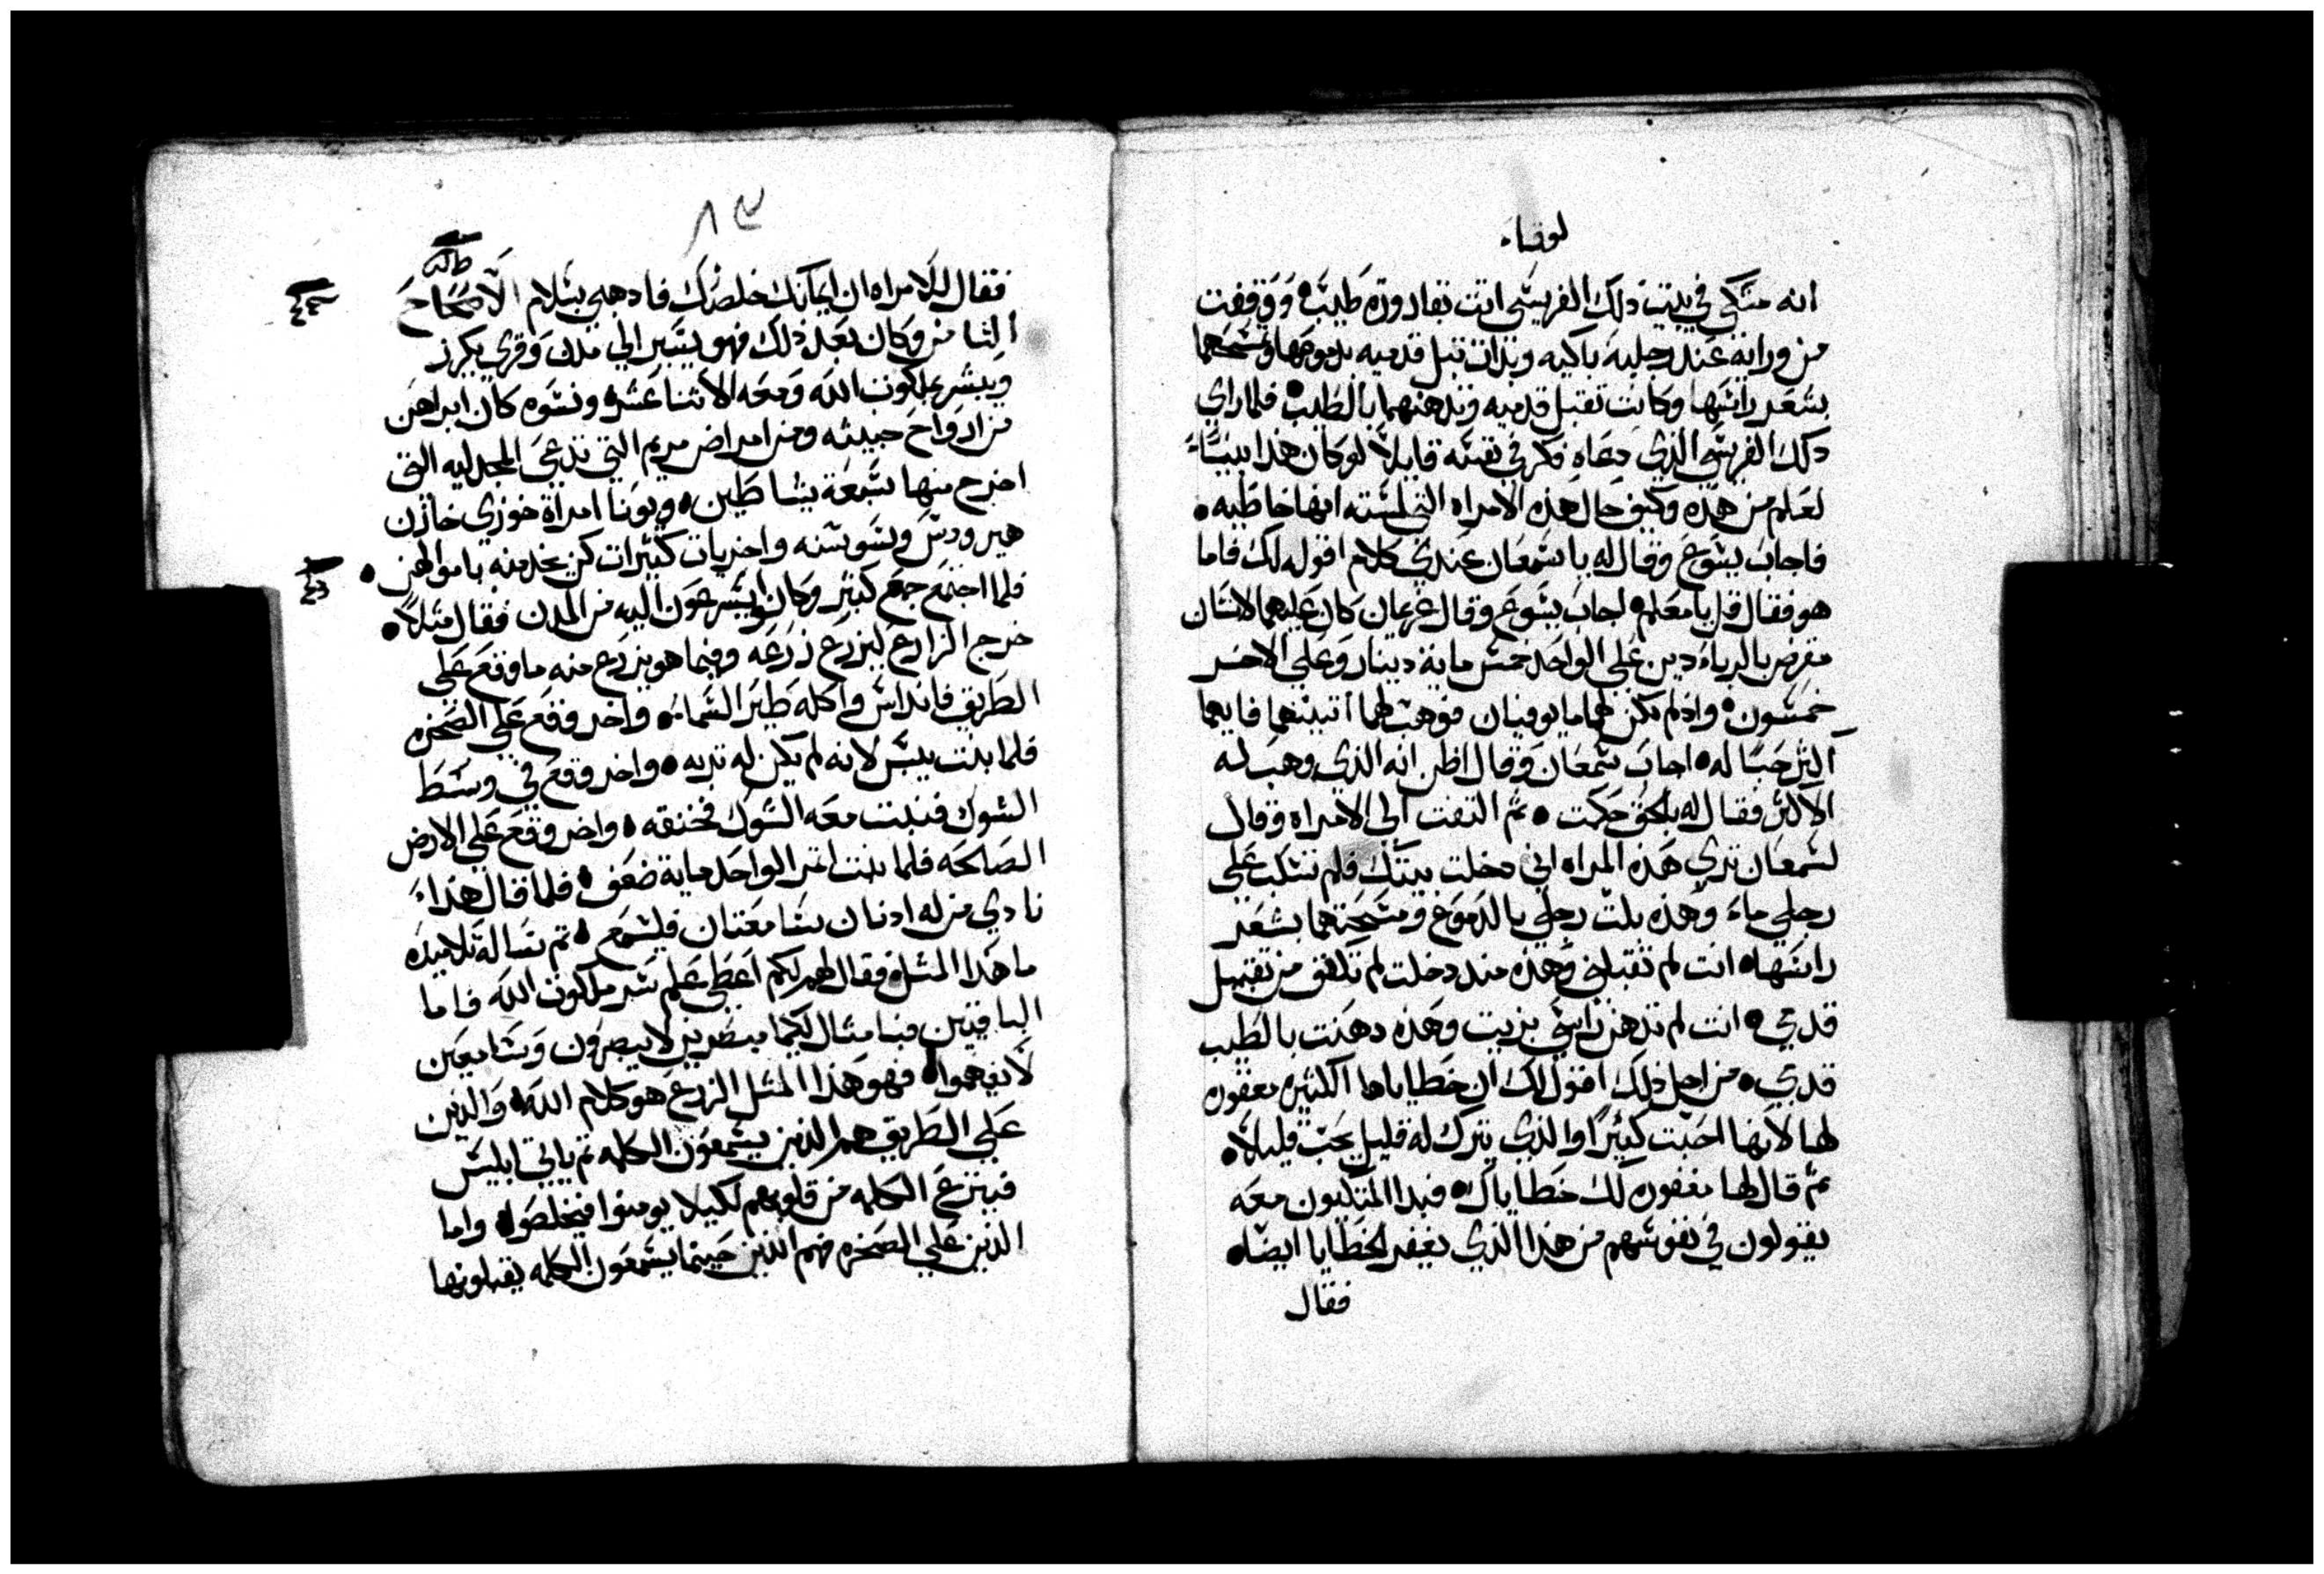 لوقاء
انه متكي في بيت ذلك الفريسي اتت بقارورة طيب ووقفت
من ورائه عند رجليه باكيه وبدات تبل قدميه بدموعها وتمسحهما
بشعر راسها وكانت تقبل قدميه وتدهنهما بالطيب فلما راي
ذلك الفريسي الذي دعاه فكر في نفسه قايلاً لو كان هذا نبياً
لعلم من هذه وكيف حال هذه الامراه التي لمسته انها خاطيه
فاجاب يسوع وقال له يا سمعان عندي كلام اقوله لك فاما
هو فقال قل يا معلم اجاب يسوع وقال غريمان كان عليهما لانسان
مقرض بالرباء دين علي الواحد خمس ماية دينار وعلي الاخر
خمسون واذ لم يكن لهما ما يوفيان فوهب لهما اتنينهما فايهما
اكثر حباً له اجاب سمعان وقال اظن انه الذي وهب له
الاكثر فقال له بالحق حكمت ثم التفت الي الامراه وقال
لسمعان تري هذه المراه اني دخلت بيتك فلم تسكب علي
رجلي ماء وهذه بلت رجلي بالدموع ومسحتهما بشعر
راسها انت لم تقبلني وهذه منذ دخلت لم تكفف من تقبيل
قدمي انت لم تدهن راسي بزيت وهذه دهنت بالطيب
قدمي من اجل ذلك اقول لك ان خطاياها الكثيره مغفوره
لها لانها احبت كثيرا والذي يترك له قليل يحب قليلاً
ثم قال لها مغفوره لك خطاياك فبدا المتكيون معه
يقولون في نفوسهم من هذا الذي يغفر الخطايا ايضاً
فقال
٨٣
فقال للامراه ان ايمانك خلصك فاذهبي بسلام الاصحاح
الثامن وكان بعد ذلك فهو يسير الي مدن وقري يكرز
ويبشر بملكوت الله ومعه الاثنا عشر ونسوه كان ابراهن
من ارواح خبيثه ومن امراض مريم التي تدعي المجدليه التي
اخرج منها سبعة شياطين ويونا امراة خوزي خازن
هيرودس وسوسنه واخريات كثيرات كن يخدمنه باموالهن
فلما اجتمع جمع كثير وكانوا يسرعون اليه من المدن فقال مثلاً
خرج الزارع ليزرع زرعه وفيما هو يزرع منه ما وقع علي
الطريق فانداس واكله طير السماء واخر وقع علي الصخره
فلما بنت يبس لانه لم يكن له تربه واخر وقع في وسط
الشوك فنبت معه الشوك فخنقه واخر وقع علي الارض
الصالحه فلما بنت اثمر الواحد ماية ضعف فلما قال هذاء
نادي من له ادنان سامعتان فليسمع ثم ساله تلاميده
ما هذا المثل فقال لهم لكم اعطي علم سر ملكوت الله فاما
الباقيين فبامثال لكيما مبصرين لا يبصرون وسامعين
لا يفهموا فهو هذا المثل الزرع هو كلام الله والذين
علي الطريق هم الذين يسمعون الكلمه ثم ياتي ابليس
فينزع الكلمه من قلوبهم لكيلا يومنوا فيخلصوا واما
الذين علي الصخره فهم الذين حينما يسمعون الكلمه يقبلونها